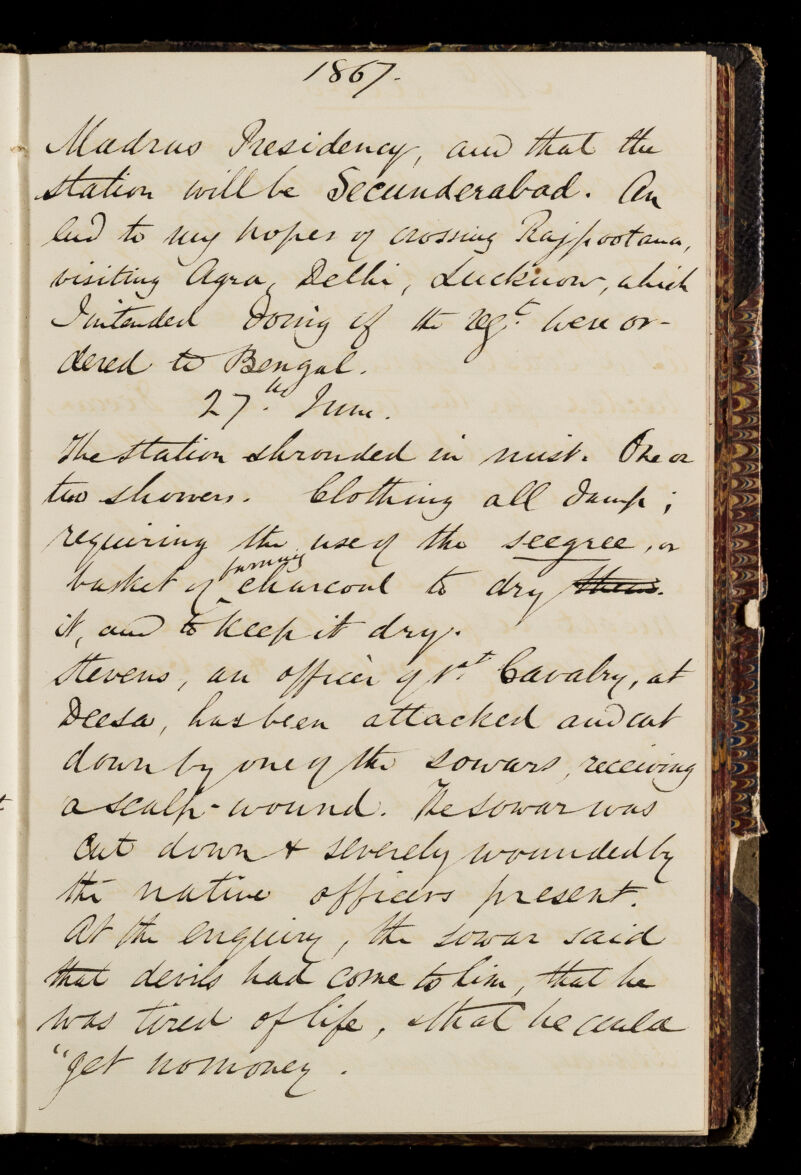 1867.
Madras Presidency, and that the
station will be Secunderabad. An
end to my hopes of crossing Rajpootana,
visiting Agra, Delhi, Lucknow, which
I intended doing if the regt. were or-
dered to Bengal.
27th. June.
The station shrouded in mist. One or
two showers. Clothing all damp;
requiring the use of the seegree, or
basket of burning charcoal to dry them.
it, and to keep it dry.
Stevens, an officer of 1st Cavalry, at
Deesa, has been attacked and cut
down by one of the sowars, receiving
a scalp-wound. The sowar was
cut down & severely wounded by
the native officers present.
At the enquiry, the sowar said
that devils had come to him, that he
was tired of life, & that he could
"get no money.